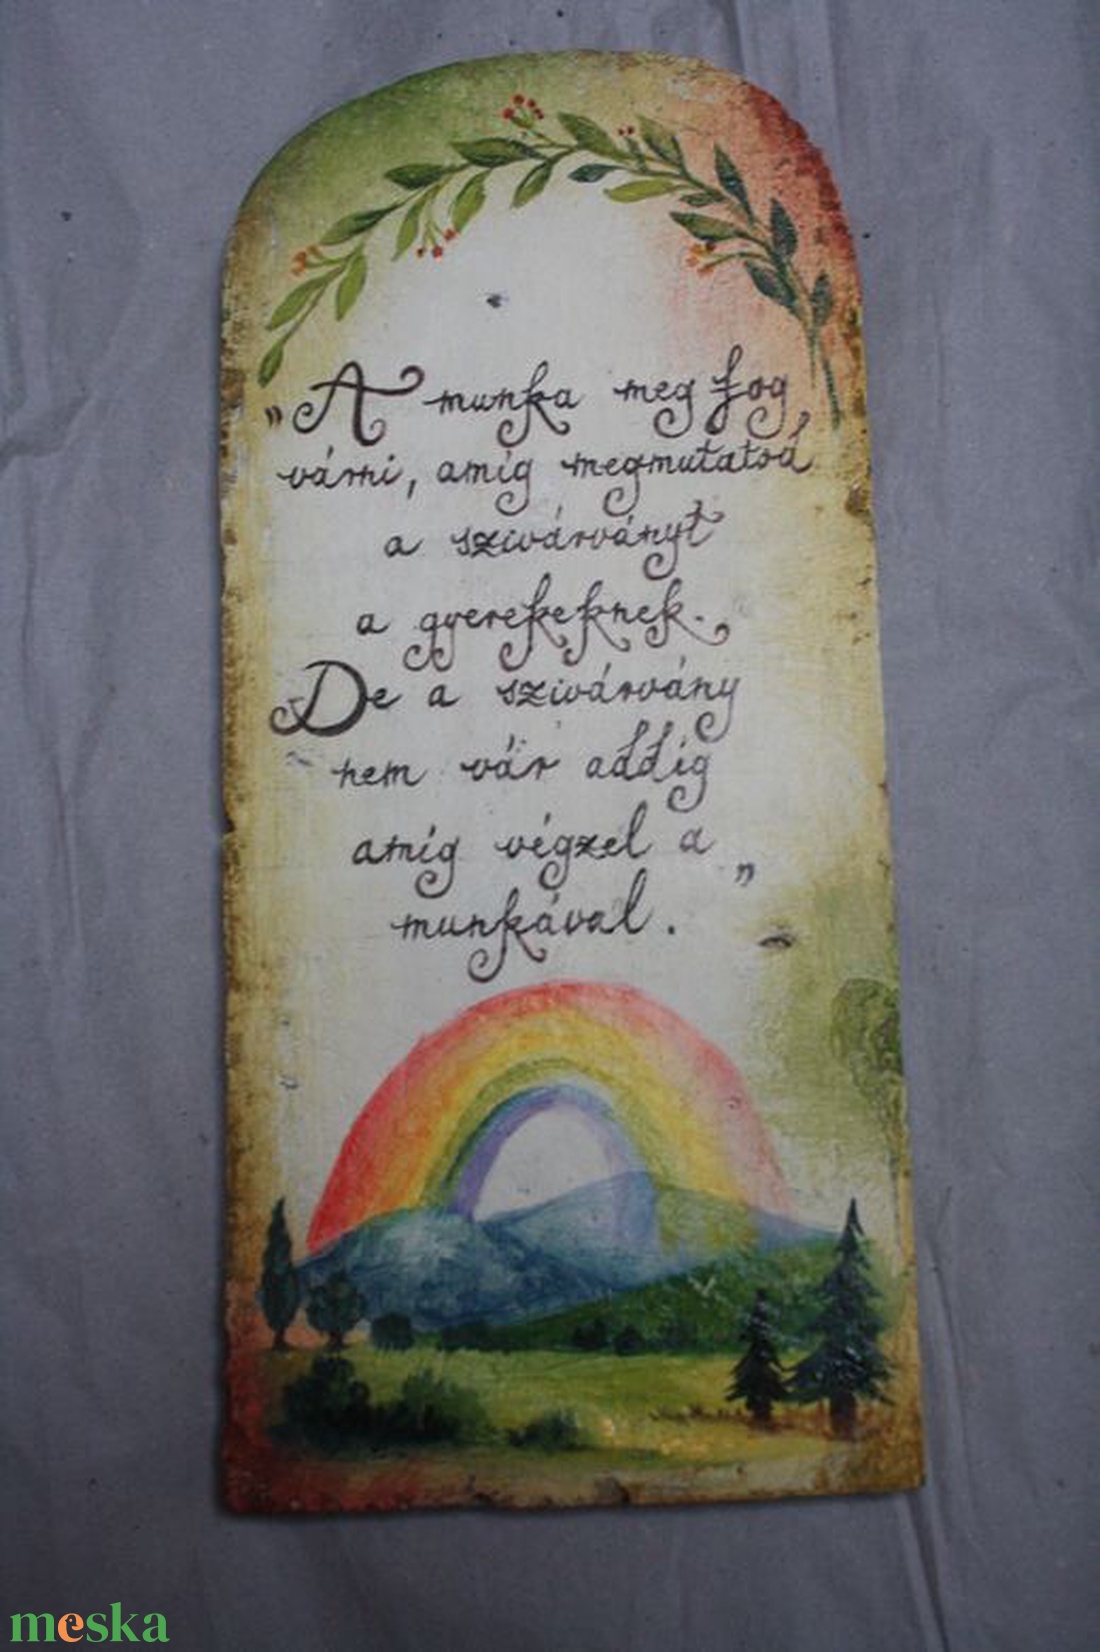 „A munka meg fog
várni, amíg megmutatod
a szivárványt
a gyerekeknek.
De a szivárvány
nem vár addig
amíg végzel a
munkával.”
meska